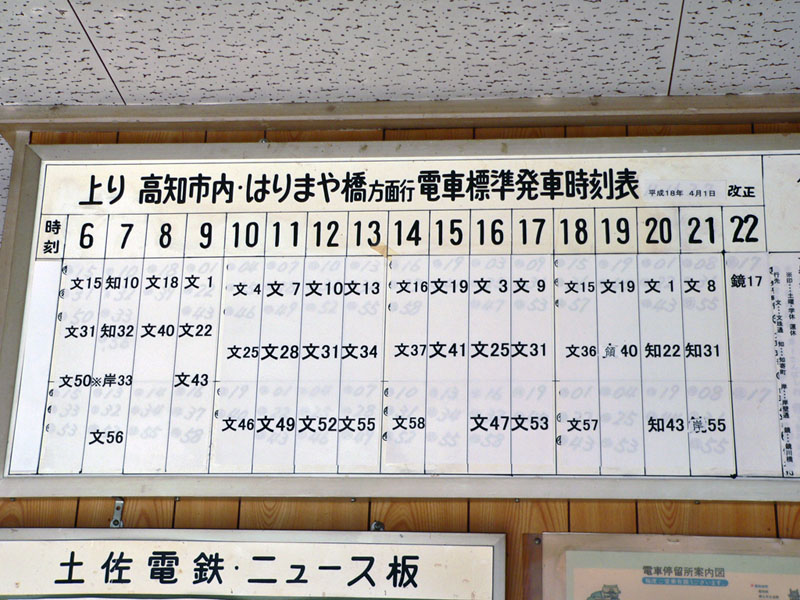 上り 高知市内・はりまや橋方面行 電車標準発車時刻表 平成18年 4月1日 改正
時刻 6 7 8 9 10 11 12 13 14 15 16 17 18 19 20 21 22
文15 知10 文18 文1 文4 文7 文10 文13 文16 文19 文3 文9 文15 文19 文1 文8 鏡17
文31 知32 文40 文22 文25 文28 文31 文34 文37 文41 文25 文31 文36 40 知22 知31
文50 ※岸33 文43
文56 文46 文49 文52 文55 文58 文47 文53 文57 知43 岸55
※印…土曜・学休 運休
行先 文…文珠通 知…知寄町 岸…岸壁通 鏡…鏡川橋
土佐電鉄・ニュース板
電車停留所案内図